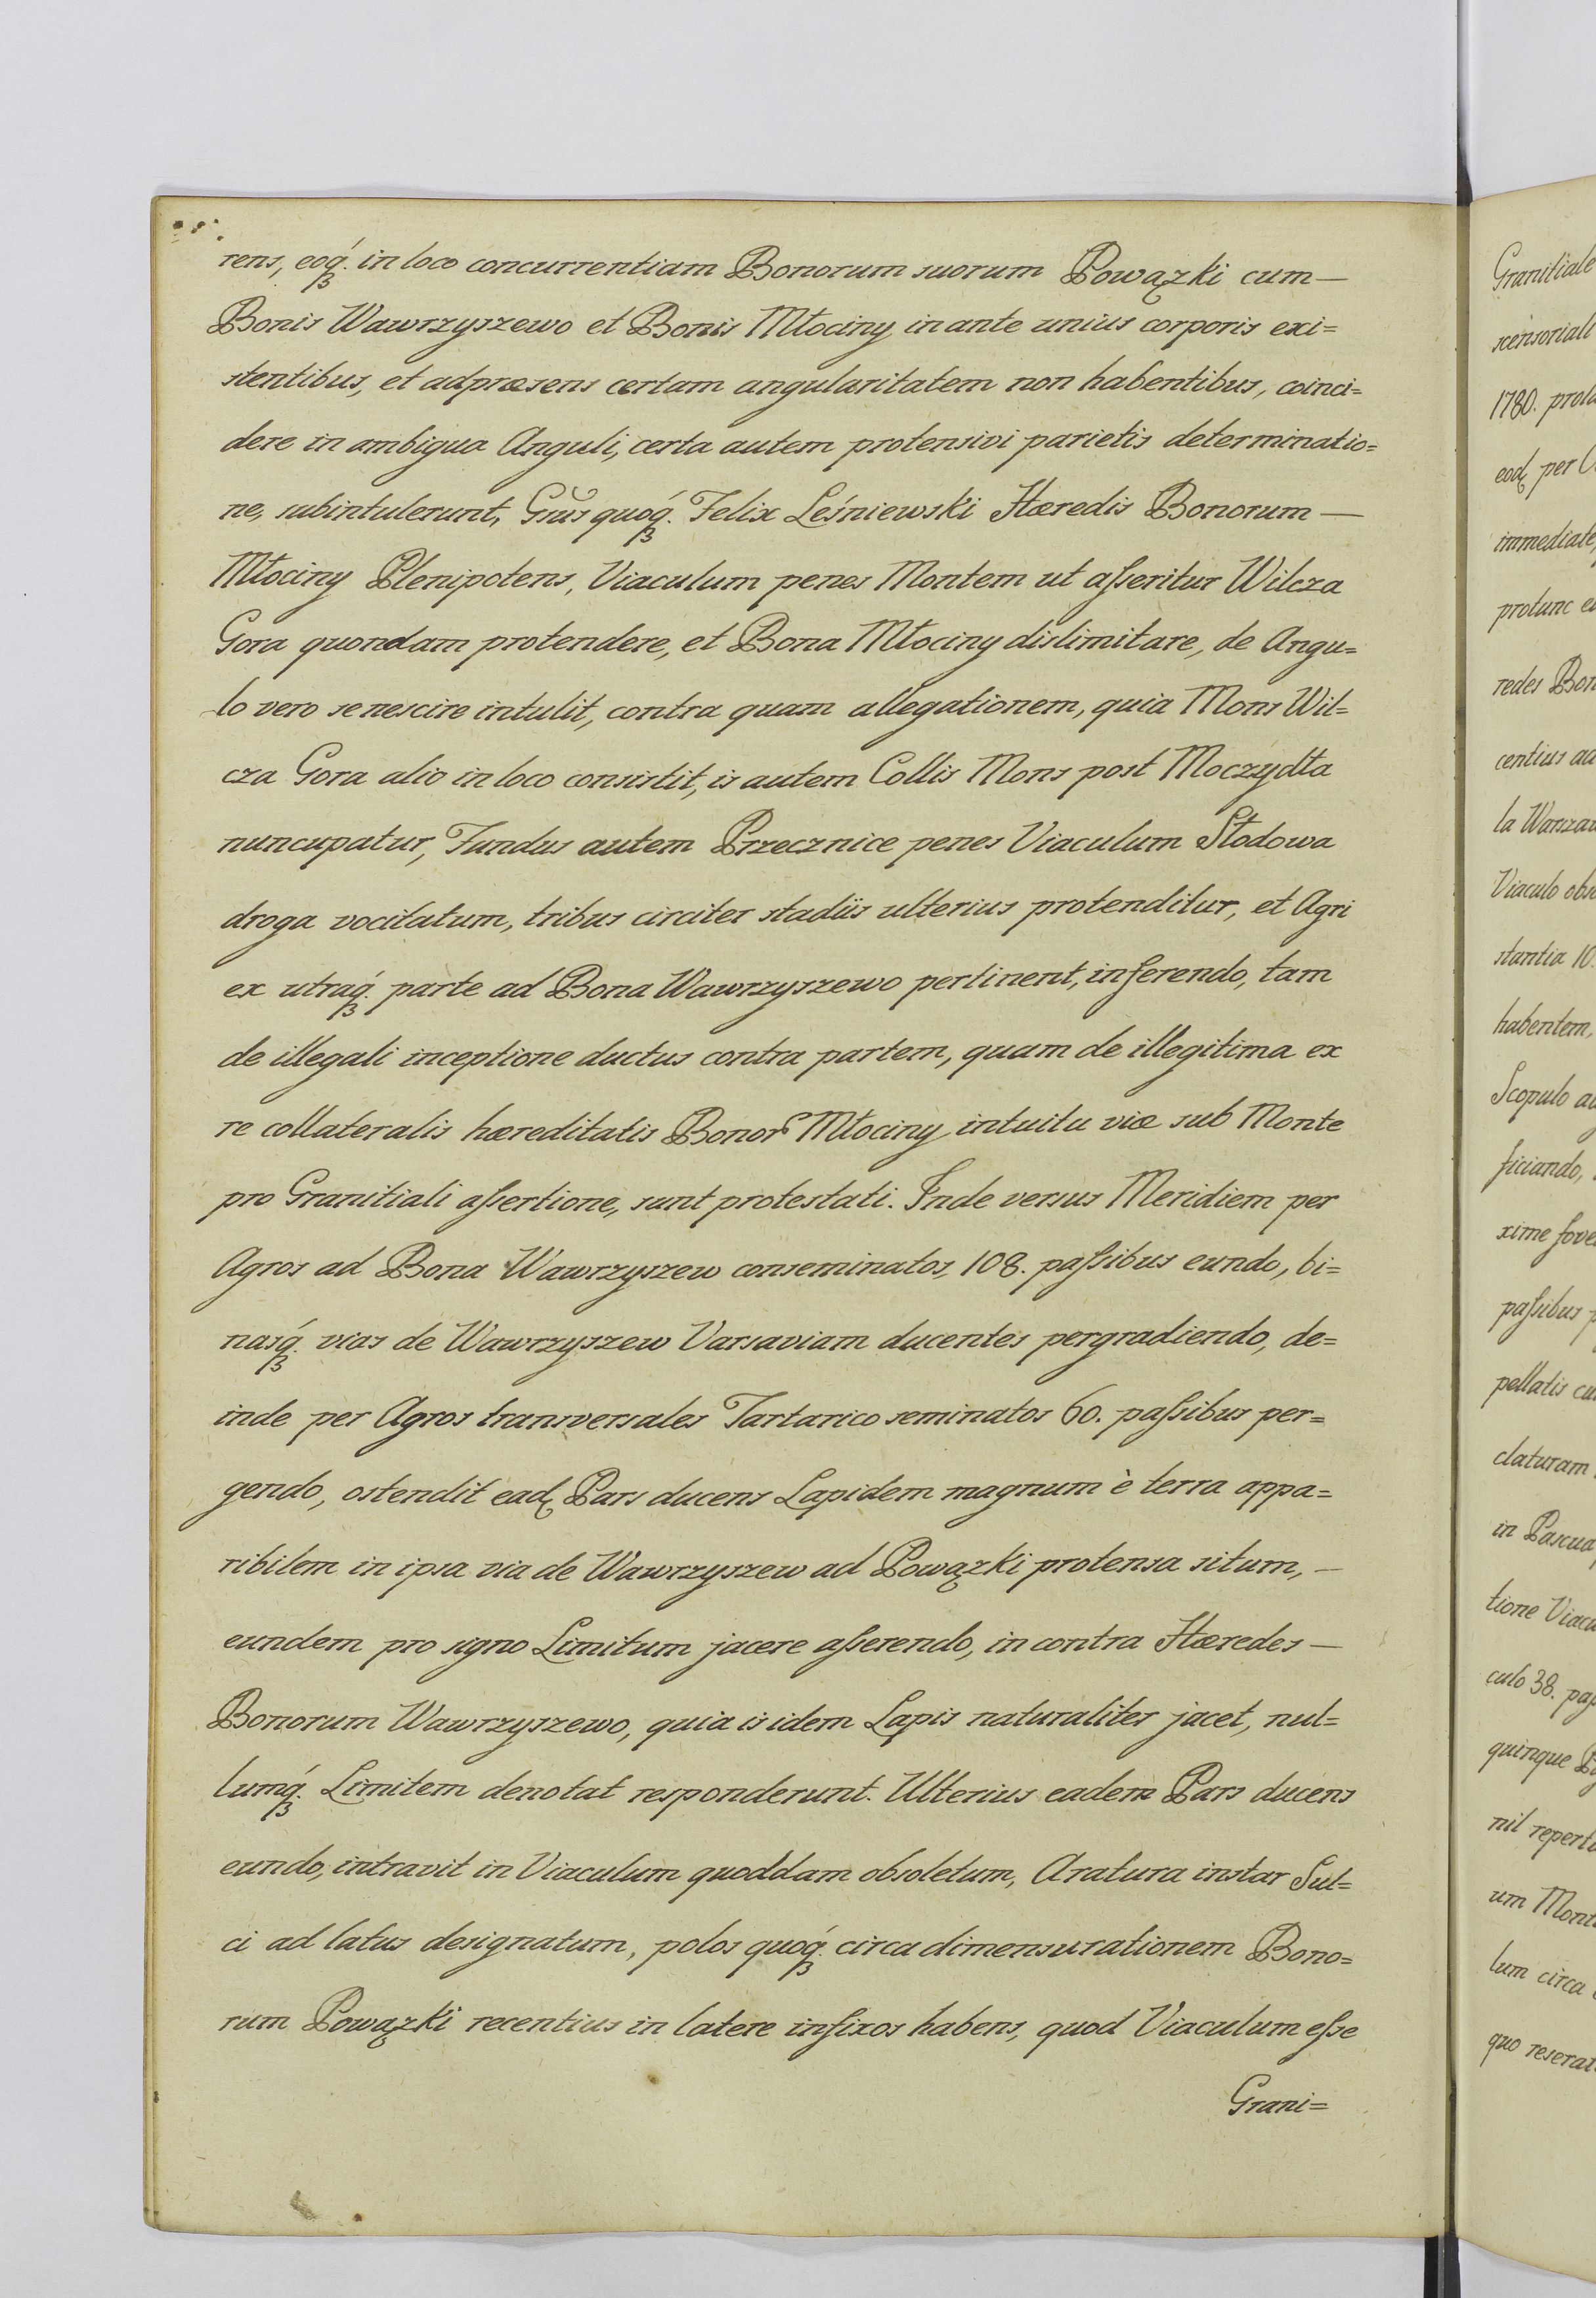 rens, eoq́ꝫ. in loco concurrentiam Bonorum suorum Powązki cum —
Bonis Wawrzyszewo et Bonis Młociny in ante unius corporis exi=
stentibus, et adpræsens certam angularitatem non habentibus, coinci=
dere in ambigua Anguli, certa autem protensivi parietis determinatio=
ne, subintulerunt, Gsus quoq́ꝫ. Felix Leśniewski Hæredis Bonorum —
Młociny Plenipotens, Viaculum penes Montem ut aſseritur Wilcza
Gora quondam protendere, et Bona Młociny dislimitare, de Angu=
lo vero se nescire intulit, contra quam allegationem, quia Mons Wil=
cza Gora alio in loco consistit, is autem Collis Mons post Moczydła
nuncupatur, Fundus autem Przecznice penes Viaculum Słodowa
droga vocitatum, tribus circiter stadiis ulterius protenditur, et Agri
ex utraq́ꝫ. parte ad Bona Wawrzyszewo pertinent, inferendo, tam
de illegali inceptione ductus contra partem, quam de illegitima ex
re collateralis hæreditatis Bonor Młociny intuitu viæ sub Monte
pro Granitiali aſsertione, sunt protestati. Inde versus Meridiem per
Agros ad Bona Wawrzyszew conseminatos, 108. paſsibus eundo, bi=
nasq́ꝫ. vias de Wawrzyszew Varsaviam ducentes pergradiendo, de=
inde per Agros transversales Tartarico seminatos 60. paſsibus per=
gendo, ostendit ead Pars ducens Lapidem magnum è terra appa=
ribilem in ipsa via de Wawrzyszew ad Powązki protensa situm, —
eundem pro signo Limitum jacere aſserendo, in contra Hæredes —
Bonorum Wawrzyszewo, quia is idem Lapis naturaliter jacet, nul=
lumq́ꝫ. Limitem denotat responderunt. Ulterius eadem Pars ducens
eundo, intravit in Viaculum quoddam obsoletum, Aratura instar Sul=
ci ad latus designatum, polos quoq́ꝫ. circa dimensurationem Bono=
rum Powązki recentius in latere infixos habens, quod Viaculum eſse
Grani=
Granitiale
scensoriali
1780. prola
eod per
immediate,
protunc
redes Bon
centius
la Warszaw
Viaculo obs
stantia 10.
habentem,
Scopulo
ficiando,
xime fove
paſsibus
pellatis
claturam
in Pascua
tione Viacu
culo 38. paſ
quinque
nil repert
um Mont
lum circa
quo reserat